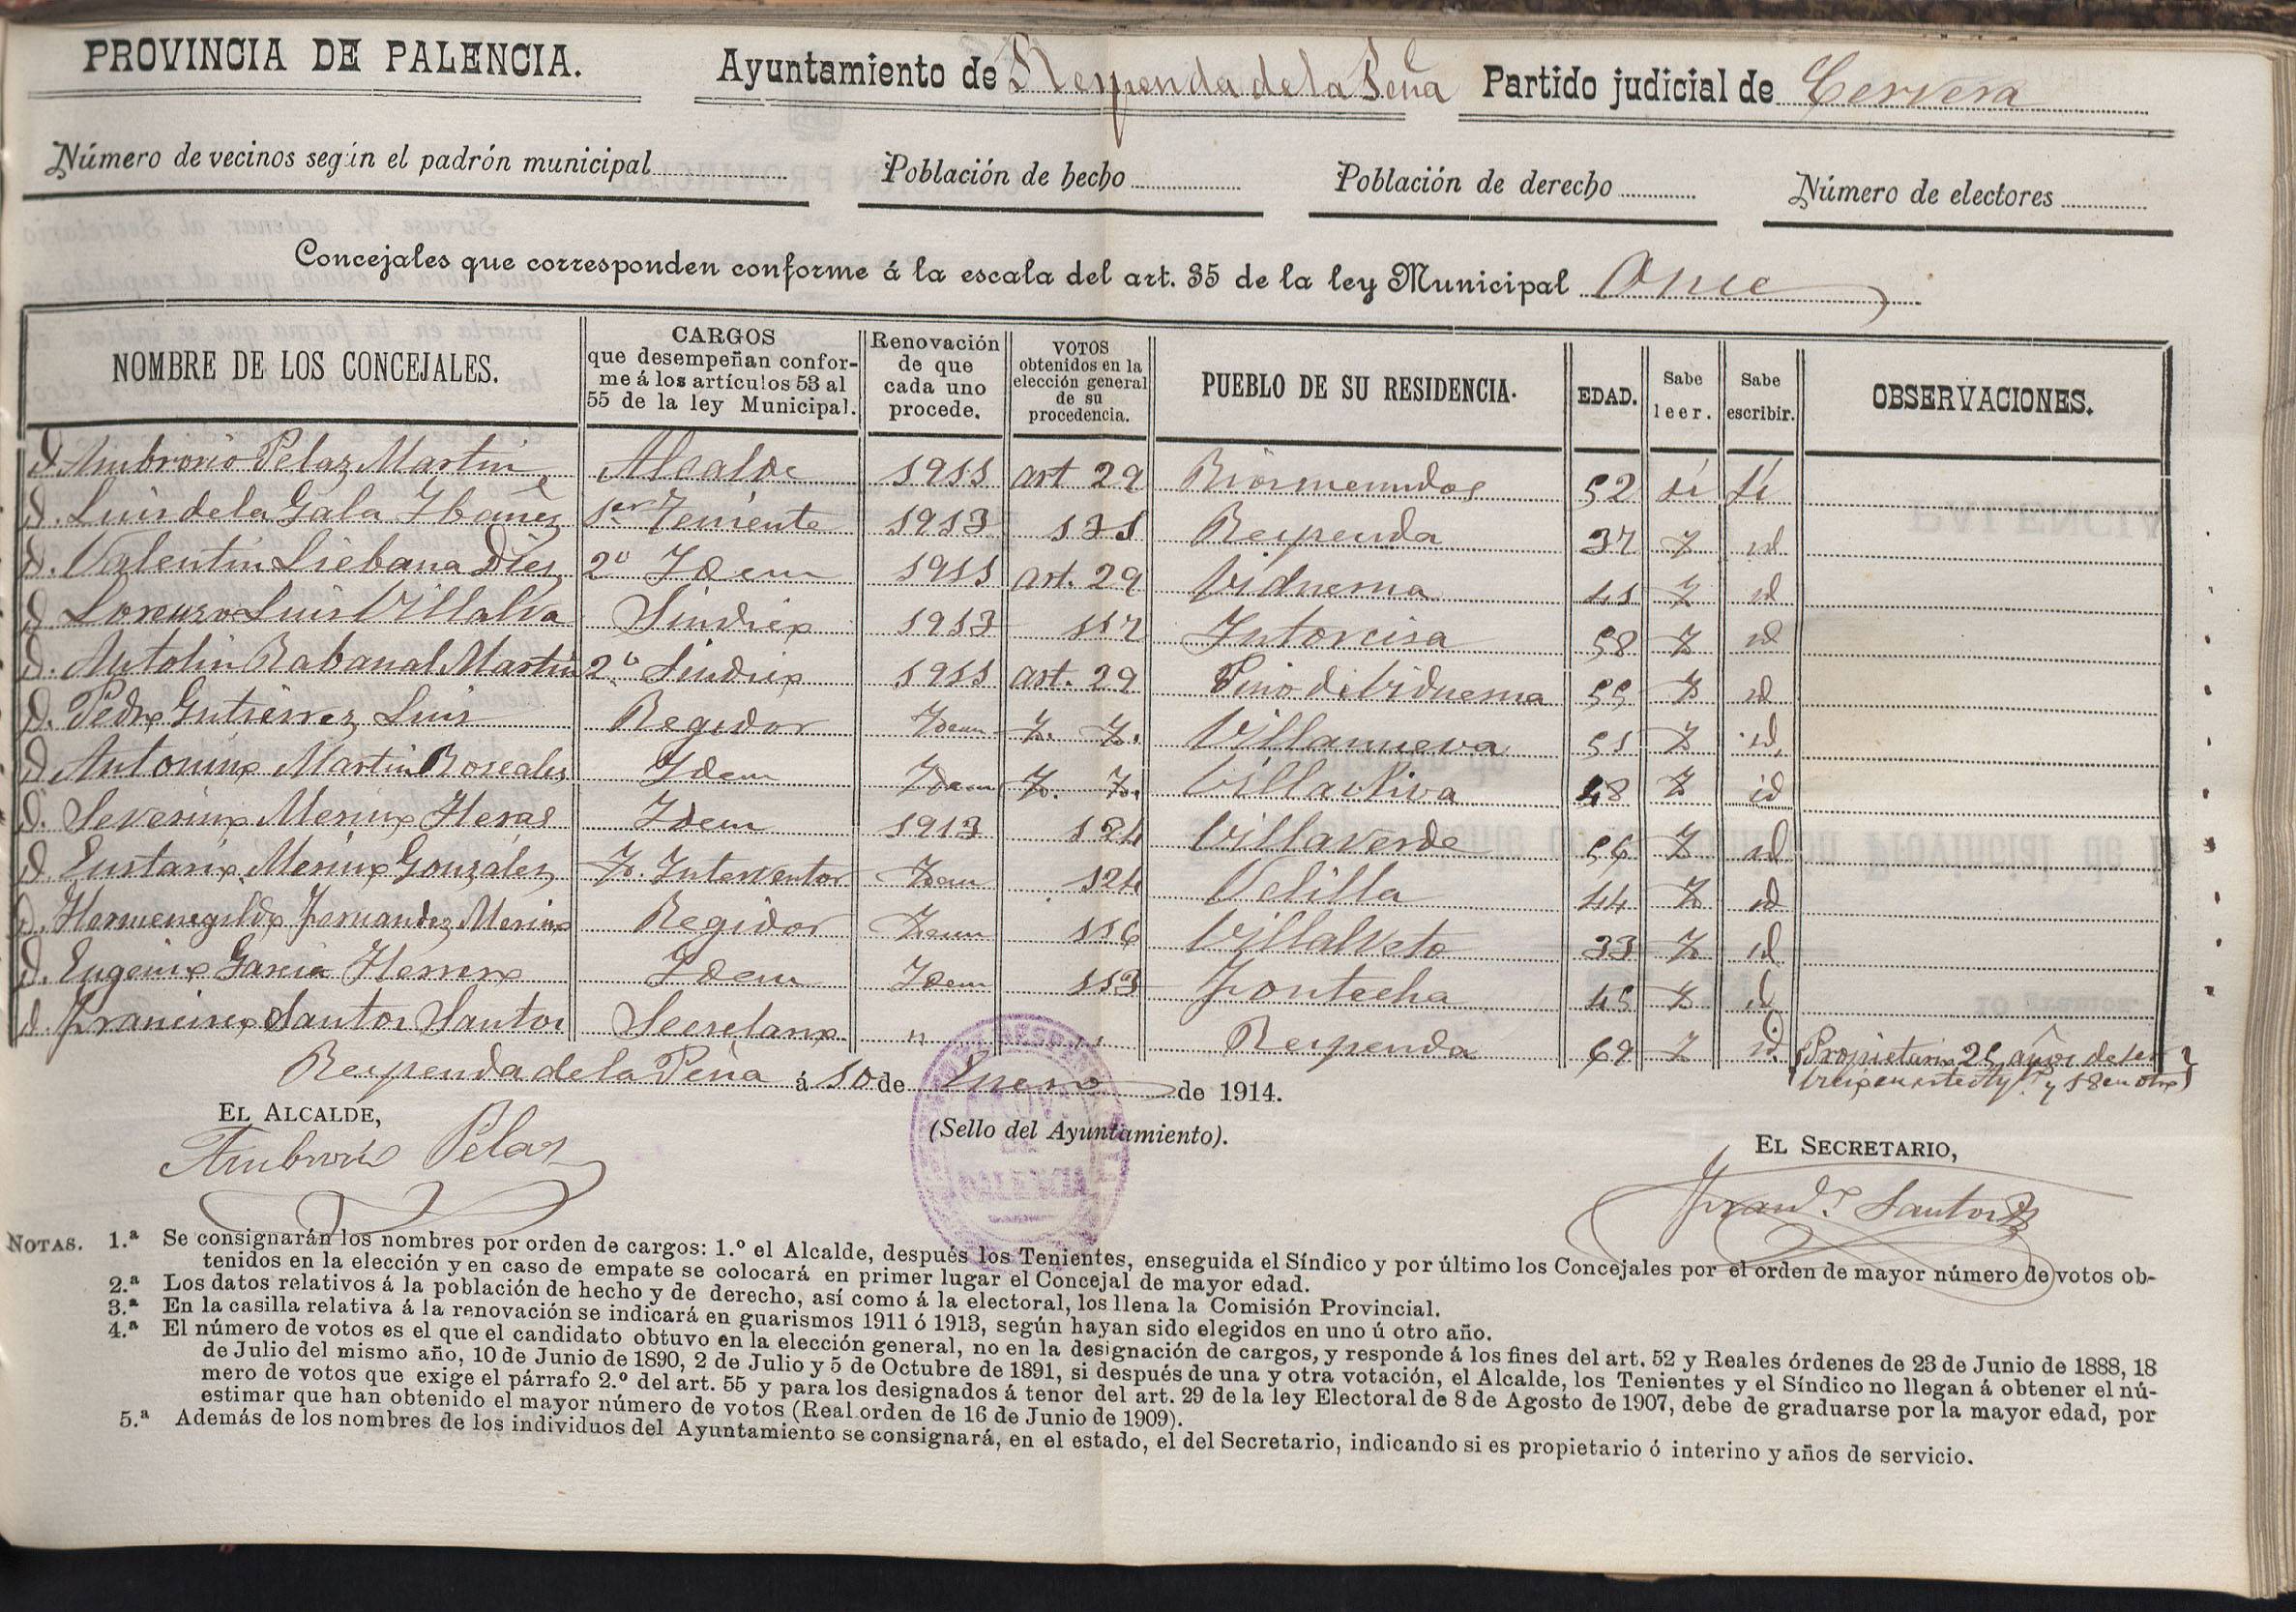 PROVINCIA DE PALENCIA. Ayuntamiento de Respenda de la Peña Partido judicial de Cervera
Número de vecinos según el padrón municipal Población de hecho Población de derecho Número de electores
Concejales que corresponden conforme á la escala del art. 35 de la ley Municipal Once
NOMBRE DE LOS CONCEJALES. CARGOS que desempeñan conforme á los artículos 53 al 55 de la ley Municipal. Renovación de que cada uno procede. VOTOS obtenidos en la elección general de su procedencia. PUEBLO DE SU RESIDENCIA. EDAD. Sabe leer. Sabe escribir. OBSERVACIONES.
D. Ambrosio Pelaz Martin Alcalde 1911 art 29 Riosmenudos 52 si si
D. Luis de la Gala Ibañez 1er Teniente 1913 131 Respenda 37 I id
D. Valentin Liebana Diez 2º Idem 1911 art. 29 Viduerna 41 I id
D. Lorenzo Luis Villalba Sindico 1913 117 Intorcisa 58 I id
D. Antolin Rabanal Martin 2º Sindico 1911 art. 29 Pino de Viduerna 55 I id
D. Pedro Gutierrez Luis Regidor Idem I. I. Villanueva 51 I id
D. Antonino Martin Rosales Idem Idem I. I. Villaoliva 48 I id
D. Severino Merino Heras Idem 1913 124 Villaverde 56 I id
D. Eustasio Merino Gonzalez I. Interventor Idem 124 Velilla 44 I id
D. Hermenegildo Fernandez Merino Regidor Idem 116 Villalbeto 33 I id
D. Eugenio Garcia Herrero Idem Idem 113 Fontecha 45 I id
D. Francisco Santos Santos Secretario " " Respenda 69 I id. Propietario 25 años de ser
vicio en este Aytº y 18 en otro
Respenda de la Peña á 10 de Enero de 1914.
EL ALCALDE,
(Sello del Ayuntamiento).
EL SECRETARIO,
Ambrosio Pelaz
Francº Santos
PALENCIA
NOTAS. 1.ª Se consignarán los nombres por orden de cargos: 1.º el Alcalde, después los Tenientes, enseguida el Síndico y por último los Concejales por el orden de mayor número de votos ob-
tenidos en la elección y en caso de empate se colocará en primer lugar el Concejal de mayor edad.
2.ª Los datos relativos á la población de hecho y de derecho, así como á la electoral, los llena la Comisión Provincial.
3.ª En la casilla relativa á la renovación se indicará en guarismos 1911 ó 1913, según hayan sido elegidos en uno ú otro año.
4.ª El número de votos es el que el candidato obtuvo en la elección general, no en la designación de cargos, y responde á los fines del art. 52 y Reales órdenes de 23 de Junio de 1888, 18
de Julio del mismo año, 10 de Junio de 1890, 2 de Julio y 5 de Octubre de 1891, si después de una y otra votación, el Alcalde, los Tenientes y el Síndico no llegan á obtener el nú-
mero de votos que exige el párrafo 2.º del art. 55 y para los designados á tenor del art. 29 de la ley Electoral de 8 de Agosto de 1907, debe de graduarse por la mayor edad, por
estimar que han obtenido el mayor número de votos (Real orden de 16 de Junio de 1909).
5.ª Además de los nombres de los individuos del Ayuntamiento se consignará, en el estado, el del Secretario, indicando si es propietario ó interino y años de servicio.